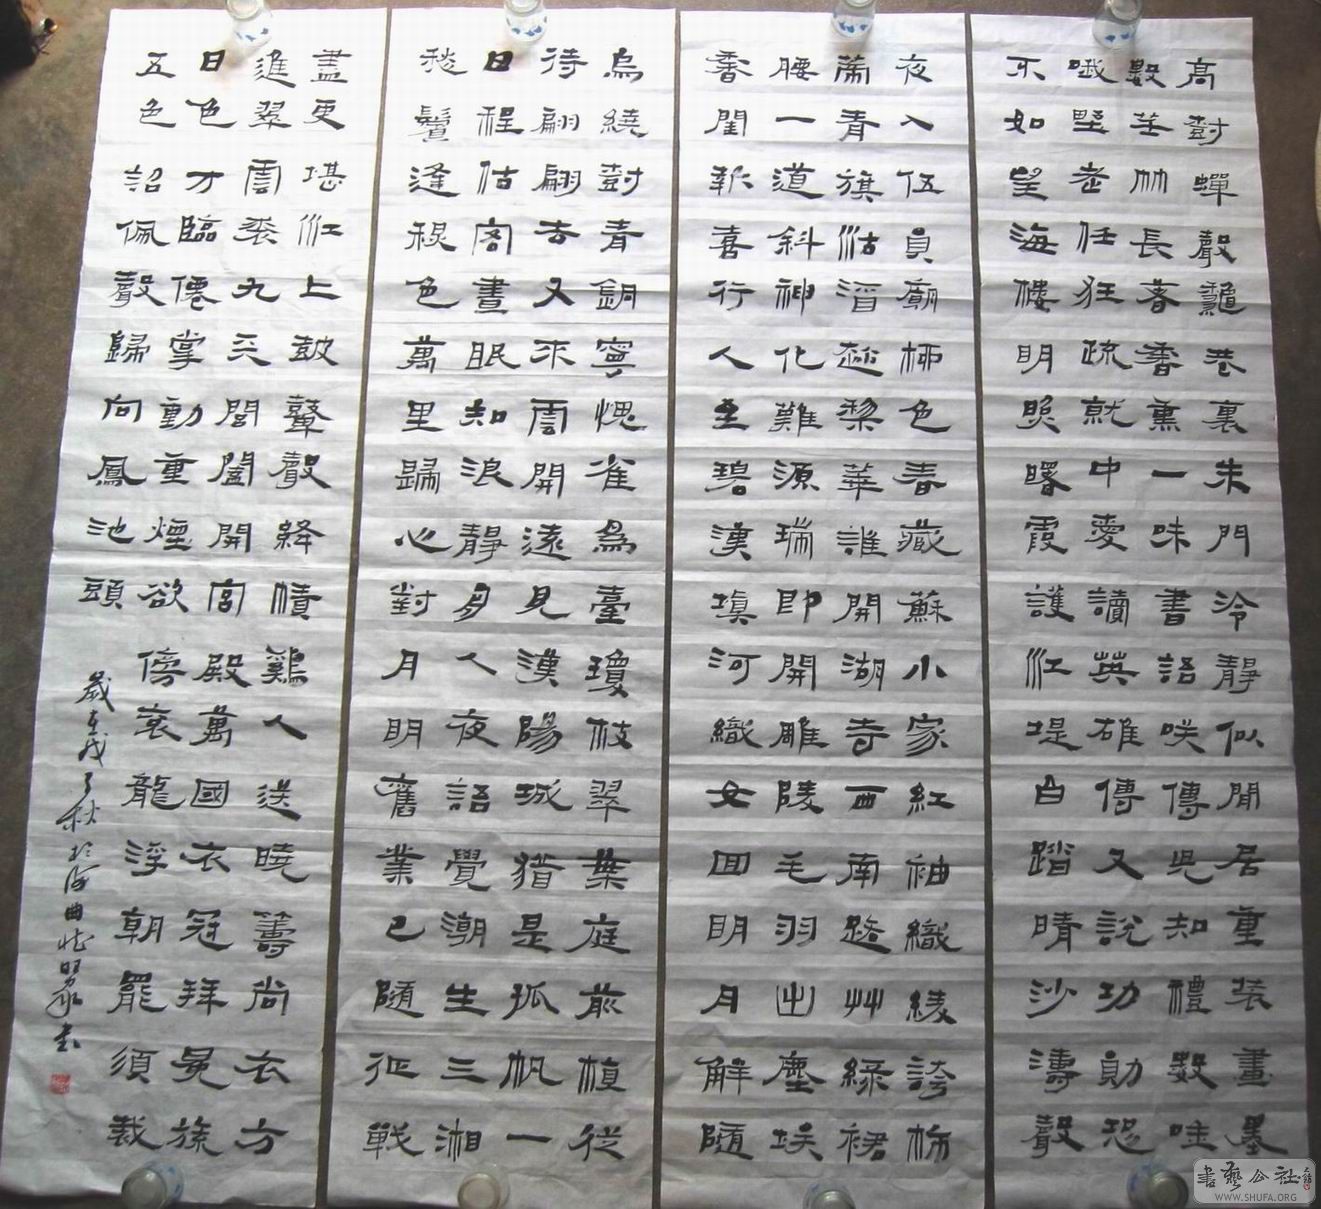 高對蟬聲龝巷裏朱門泠靜似閒居重装畫墨
數莖竹長著香熏一味書語咲傳児知禮數唯
哦野老任狂疏就中愛讀英雄傳又說功勳恐
不如望海樓明照曙霞護江堤白踏晴沙濤聲
夜入伍員廟柳色春藏蘇小家紅袖織綾誇柿
蒂青旗沽酒趁梨華誰開湖寺西南路艸綠裙
腰一道斜神化難源瑞即開雕陵毛羽出塵埃
香閨報喜行人至碧漢填河織女回明月解隨
烏繞對青銅寧愧雀爲臺瓊枝翠葉庭前植從
待翩翩去又來雲開遠見漢陽城猶是孤帆一
日程估客晝眠知浪靜舟人夜語覺潮生三湘
愁鬢逢秋色萬里歸心對月明舊業已隨征戰
盡更堪江上鼓鼙聲絳幘雞人送曉籌尚衣方
進翠雲裘九天閶闔開宮殿萬國衣冠拜冕旒
日色才臨僊掌動重煙欲傍衮龍浮朝罷須裁
五色詔佩聲歸向鳳池頭
歲在戊子秋於河曲書
書藝公社
WWW.SHUFA.ORG